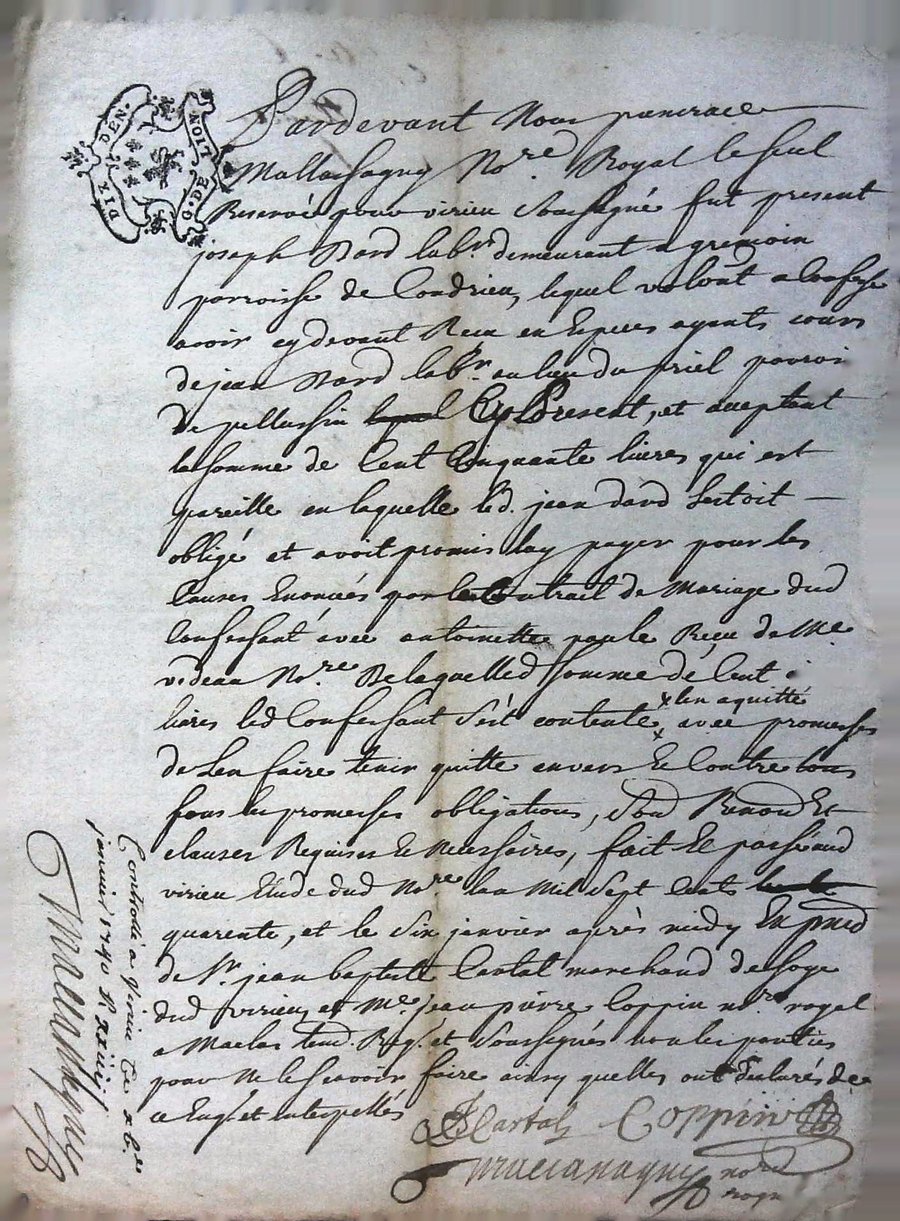 DIX DEN.
NOIT
G. DE
Pardevant Nous pancrace
Mallassagny No.re Royal le seul
Reservé pour virieu soussigné fut present
joseph Dard lab.r demeurant a gremoin
parroisse de Condrieu, lequel a Confessé
avoir cy devant Receu en Especes ayants cours
de jean Dard lab.r au lieu du priel parroi
de pellussin Cy Present, et aceptant
la somme de Cent Cinquante livres qui est
pareille en laquelle led. jean dard sestoit
obligé et avoit promis luy payer pour les
Causes Enoncées par le Contrait de Mariage dud
Confessant avec antoinette paule Reçu de Me
videau No.re De laquelled somme de Cent
x len aquitte
livres led Confessant s'est contenté x avec promesse
de len faire tenir quitte envers Et Contre tous
sous les promesses obligations, Renon Et
clauses Requises Et Necessaires, fait Et passé aud
virieu Etude dud No.re lan Mil sept Cents
quarente, et le Six janvier après midy En pnce
de Sr. jean baptiste Cartal marchand de soye
dud virieu, et Me. jean pierre Coppin no.re royal
a Maclas tem. Req. et soussignés non les parties
pour ne le scavoir faire ainsy quelles ont declarés de
ce Enq. et interpellés
Cartal Coppin
Mallassagny no.re
royal
Controllé a virieu
janvier 1740
Mallassagny